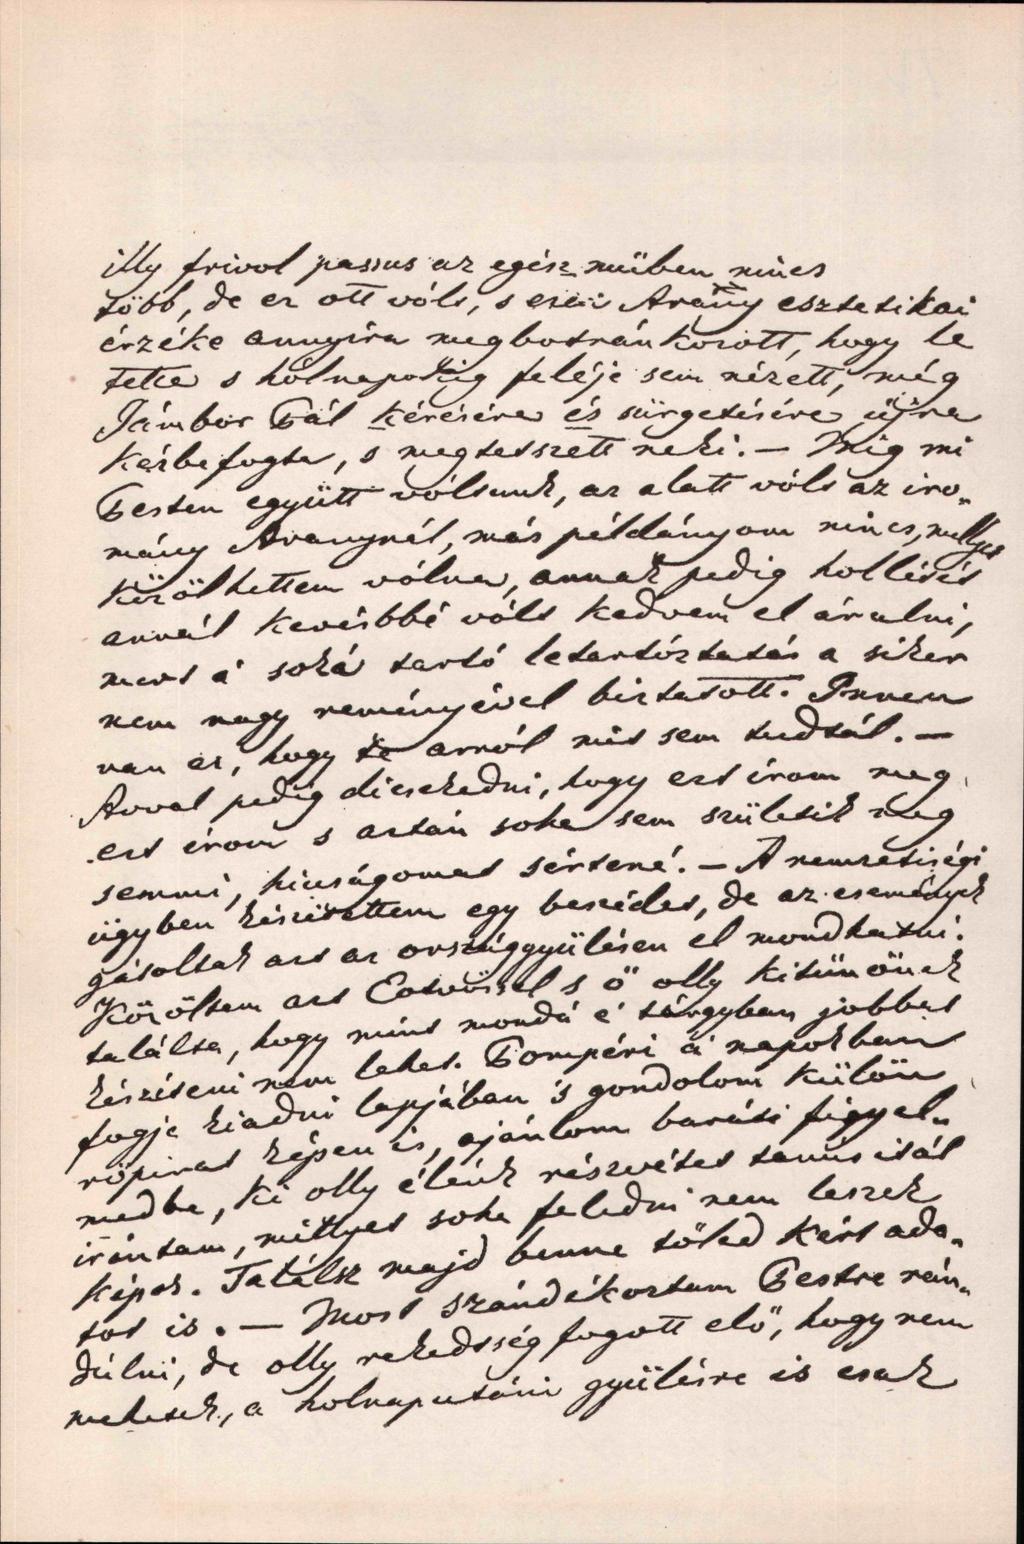 illy frivol passus az egész műben nincs
több, de ez ott vólt, s ezen Arany esztetikai
érzéke annyira megbotránkozott, hogy le
tette s hólnapokig feléje sem nézett, még
Jámbor Pál kérésére és sürgetésére újra
kézbefogta, s megtetszett neki. — Mig mi
Pesten együtt vóltunk, az alatt vólt az iro„
mány Aranynál, más példányom nincs, mellyet
közölhettem vólna, annak pedig hollétét
annál kevésbbé vólt kedvem el árulni,
mert a' soká tartó letartóztatás a siker
nem nagy reményével biztatott. Innen
van az, hogy te arról mit sem tudtál. —
Avval pedig dicsekedni, hogy ezt írom meg
ezt írom s aztán soha sem születik meg
semmi, hiuságomat sértené. — A nemzetiségi
ügyben készítettem egy beszédet, de az események
gátoltak azt az országgyülésen el mondhatni.
Közöltem azt Eötvössel s ő olly kitünőnek
találta, hogy mint mondá e' tárgyban jobbat
készíteni nem lehet. Pompéri a' napokban
fogja kiadni lapjában 's gondolom külön
röpirat képen is, ajánlom baráti figyel„
medbe, ki olly élénk részvétet tanúsitál
irántam, mellyet soha feledni nem leszek
képes. Találsz majd benne tőled kért ada„
tot is. — Most szándékoztam Pestre rán„
dúlni, de olly rekedtség fogott elő, hogy nem
mehetek, a holnaputáni gyülésre is csak